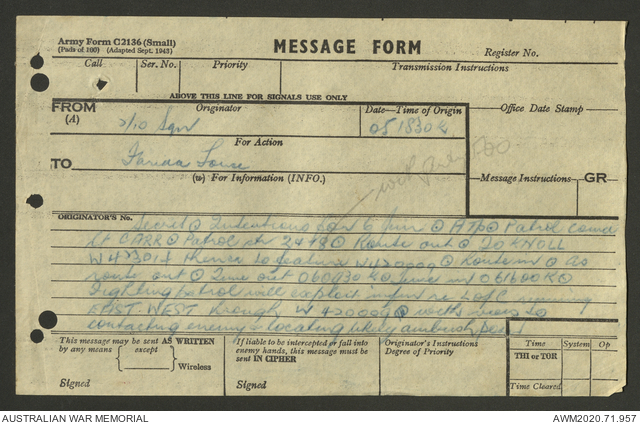 Army Form C2136 (Small)
(Pads of 100) (Adapted Sept. 1943)
MESSAGE FORM
Register No.
Call
Ser. No.
Priority
Transmission Instructions
ABOVE THIS LINE FOR SIGNALS USE ONLY
FROM
(A)
Originator
Date—Time of Origin
Office Date Stamp
2/10 Sqn
051830K
For Action
TO
Farida Force
(w) For Information (INFO.)
Message Instructions
GR
ORIGINATOR'S No.
Secret @ Intentions for 6 Jun @ @ Patrol
Lt CARR @ Patrol str @ Route out @ 20 KNOLL
thence to @ Route in @ as
route out @ Time out 060930K @ time in 061600K @
Fighting patrol will exploit infm re L of C running
EAST WEST through @ with view to
contacting enemy & locating likely ambush
This message may be sent AS WRITTEN
by any means
except
Wireless
Signed
If liable to be intercepted or fall into
enemy hands, this message must be
sent IN CIPHER
Signed
Originator's Instructions
Degree of Priority
Time
System
Op
THI or TOR
Time Cleared
AUSTRALIAN WAR MEMORIAL
AWM2020.71.957